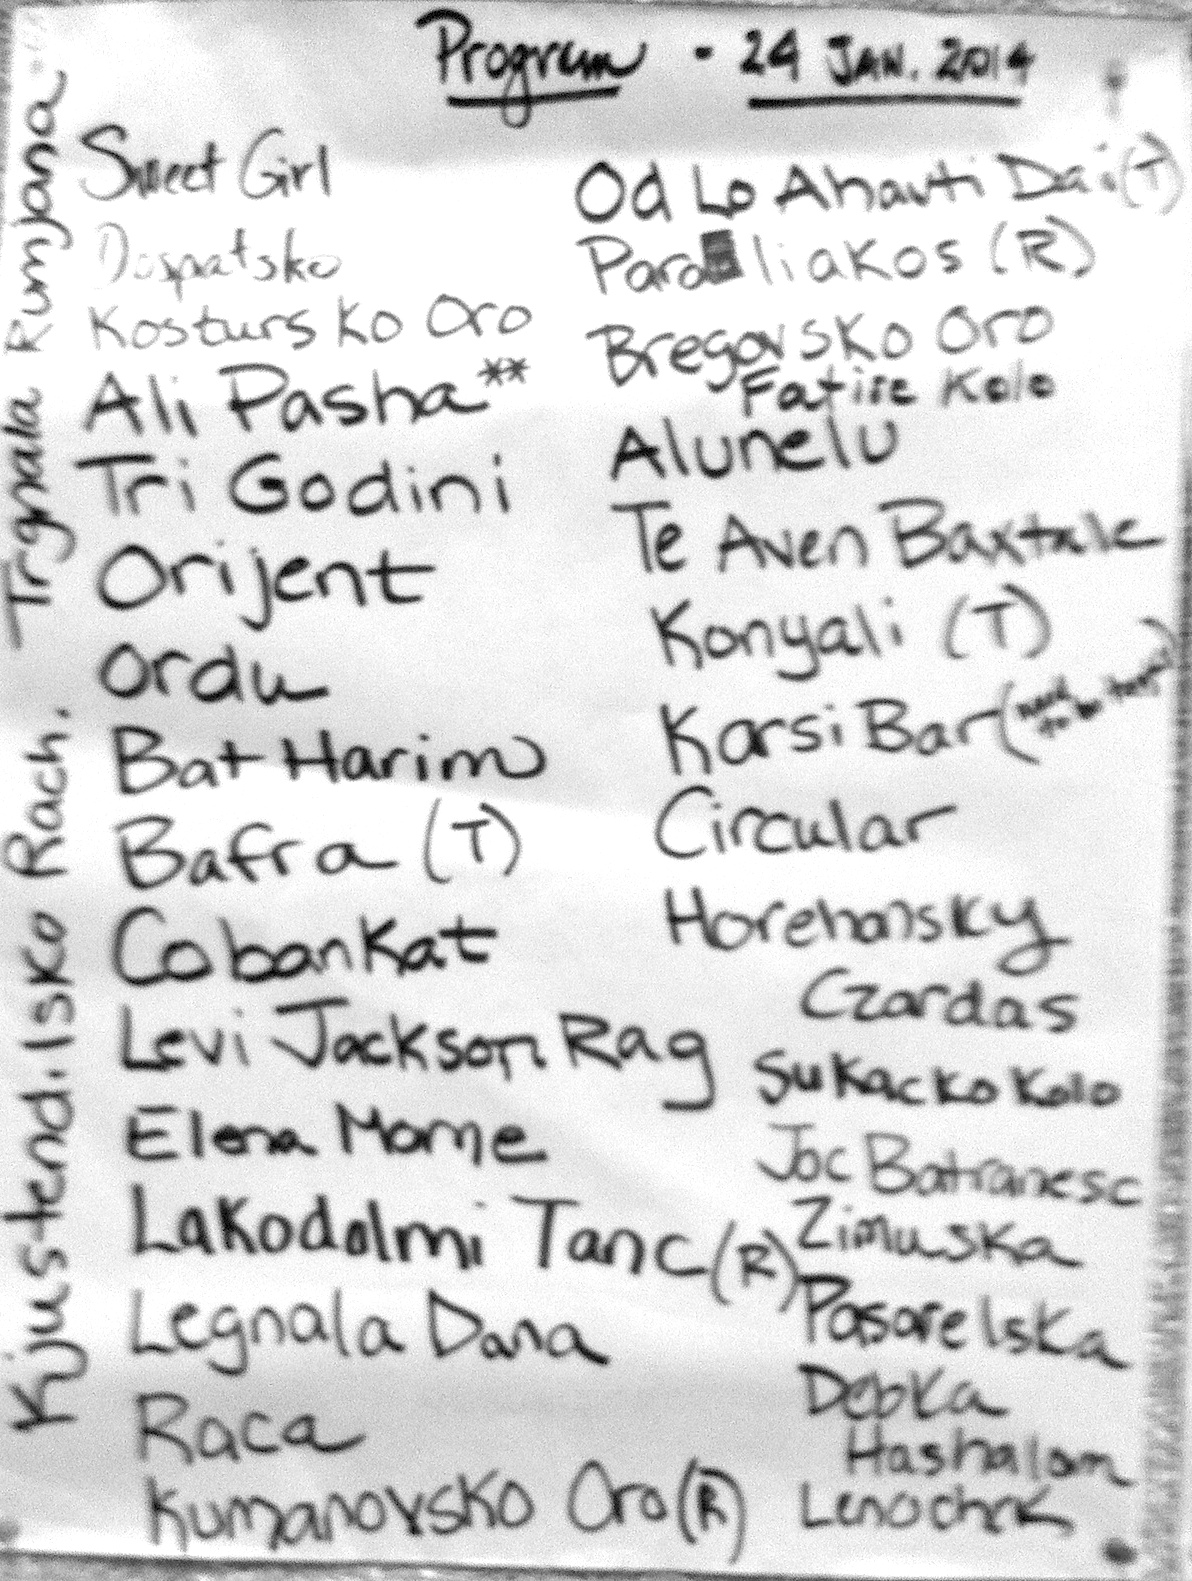 Program - 24 JAN. 2014
Sweet Girl
Dospatsko
Kostursko Oro
Ali Pasha**
Tri Godini
Orijent
Ordu
Bat Harim
Bafra (T)
Cobankat
Levi Jackson Rag
Elena Mome
Lakodalmi Tanc (R)
Legnala Dana
Raca
Kumanovsko Oro (R)
Od Lo Ahavti Dai (T)
Paraliakos (R)
Bregovsko Oro
Fatise Kolo
Alunelu
Te Aven Baxtale
Konyali (T)
Karsi Bar (need
to be
Circular
Horehansky
Czardas
Sukacko Kolo
Joc Batranesc
Zimuska
Pasarelska
Debka
Hashalom
Lenochrk
Kjustendilsko Rach.
Trgnala Rumjana